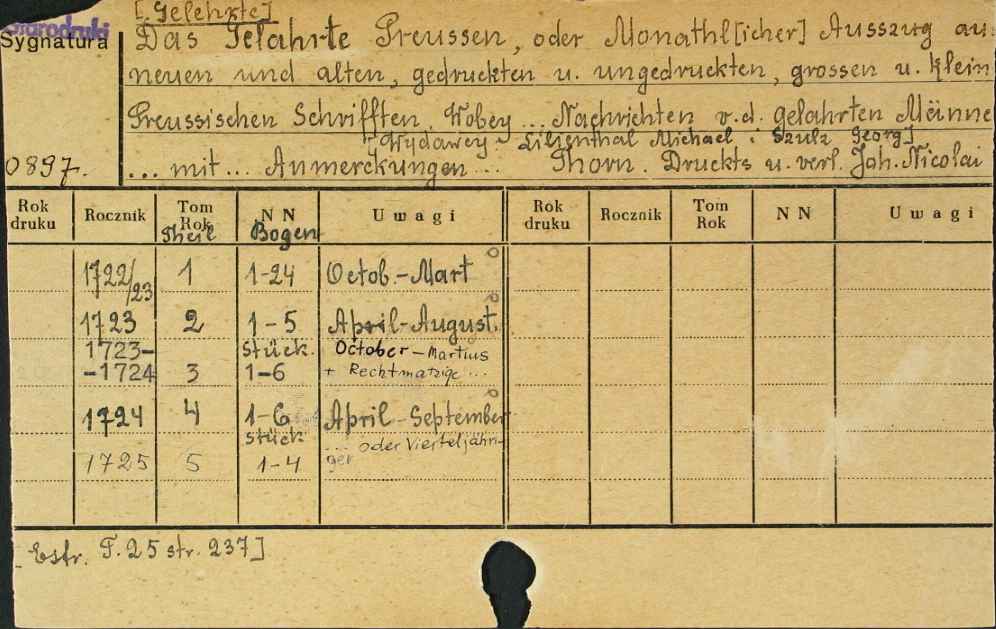 [Gelehrte]
Starodruki
Sygnatura
Das Gelahrte Preussen, oder Monathl[icher] Auszug au
neuen und alten, gedruckten u. ungedruckten, grossen u. klein
Preussischen Schrifften, Wobey ... Nachrichten v.d. gelahrten Männe
[Wydawcy Lilienthal Michael i Szulz Georg]
0897. ... mit ... Anmerckungen ... Thorn. Druckts u. verl. Joh. Nicolai
Rok druku Rocznik Tom Rok Theil NN Bogen Uwagi Rok druku Rocznik Tom Rok NN Uwagi
1722/23 1 1-24 Octob.-Mart
1723 2 1-5 April-August.
1723- stück. October-Martius
-1724 3 1-6 + Rechtmatzige ...
1724 4 1-6 April-September
stück ... oder Vierteljähri-
1725 5 1-4 ger
Estr. T. 25 str. 237]